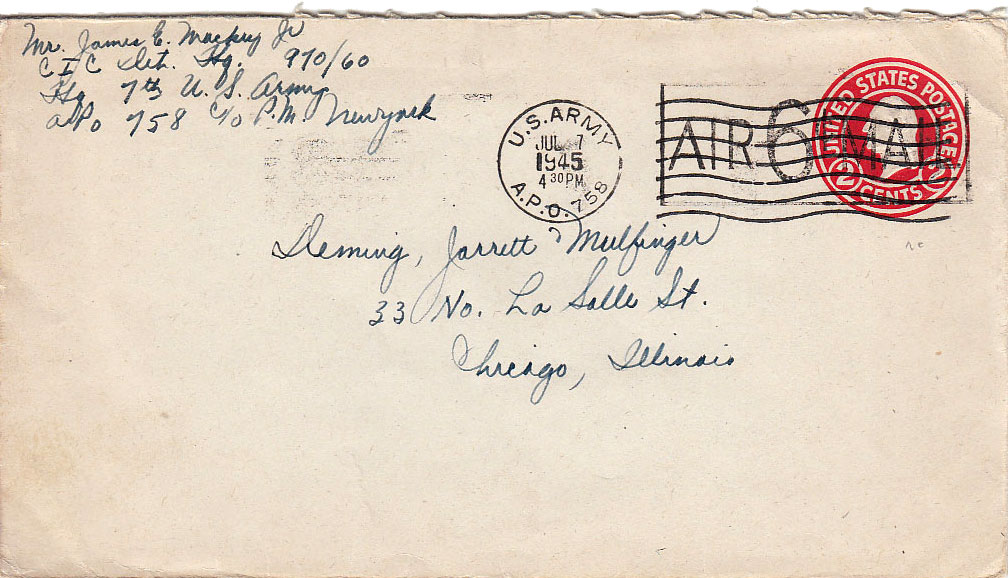 Mr. James E. Mackey Jr
C I C Det. Hq. 970/60
Hq 7th U. S. Army
APO 758 c/o P.M. Newyork
U.S. ARMY
JUL 7
1945
4 30 PM
A.P.O. 758
AIR 6 MAIL
UNITED STATES POSTAGE
2 CENTS 2
Deming, Jarrett & Mulfinger
33 No. La Salle St.
Chicago, Illinois